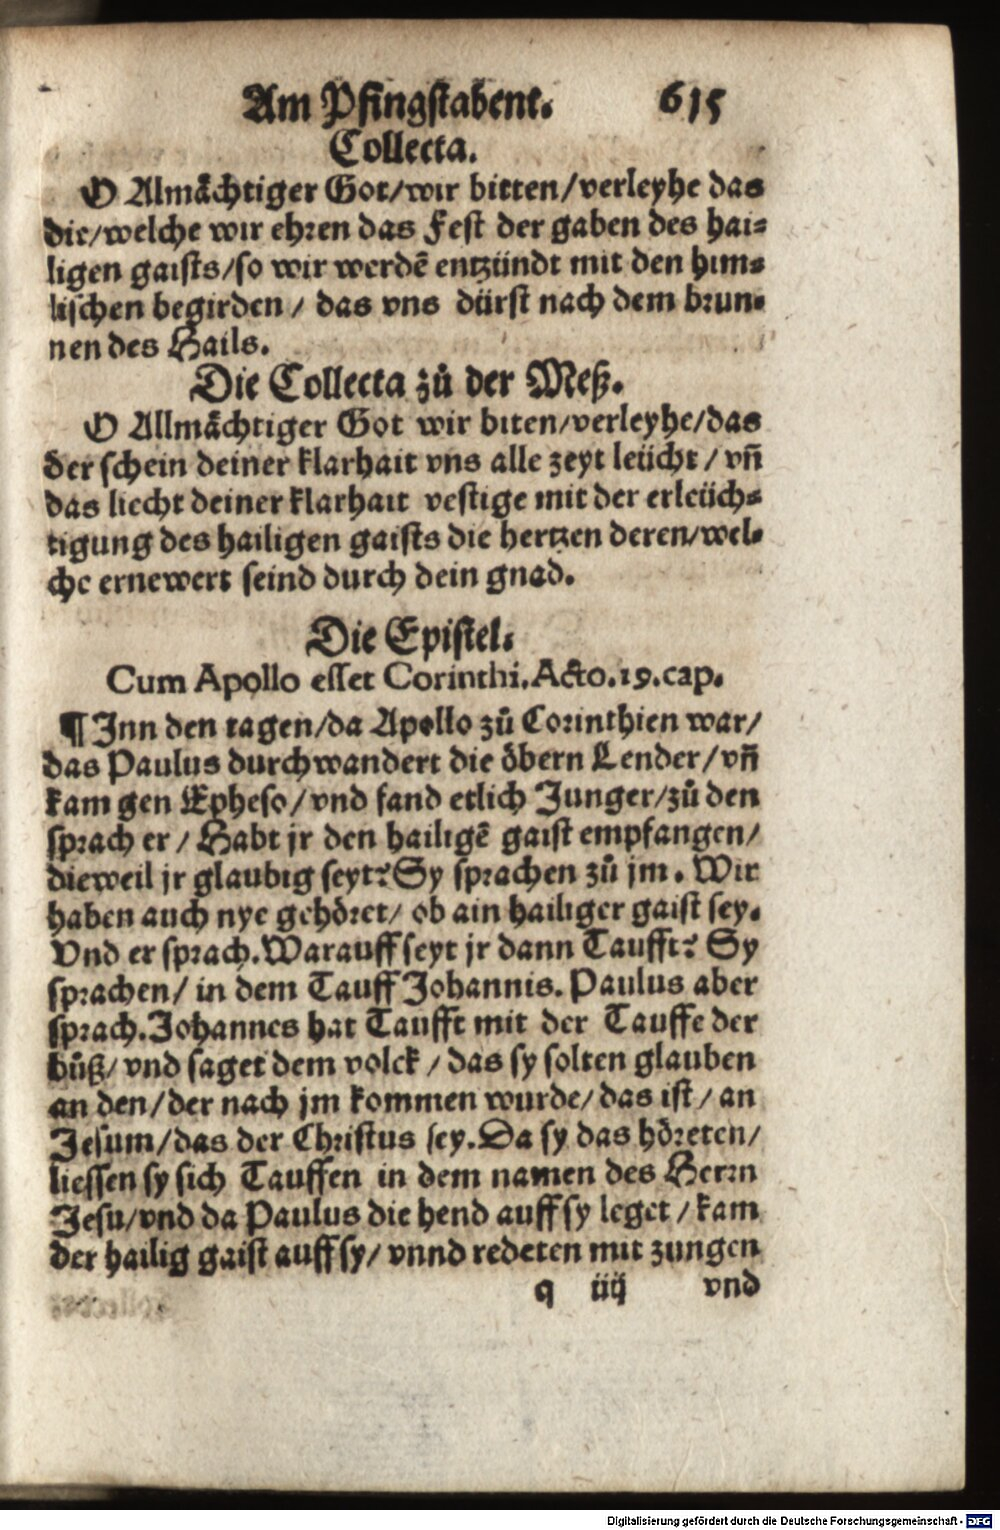 Am Pfingstabent. 615
Collecta.
O Almächtiger Got/wir bitten/verleyhe das
die/welche wir ehren das Fest der gaben des hai-
ligen gaists/so wir werdē entzündt mit den him-
lischen begirden/ das vns dürst nach dem brun-
nen des Hails.
Die Collecta zů der Meß.
O Allmächtiger Got wir biten/verleyhe/das
der schein deiner klarhait vns alle zeyt leücht/ vñ
das liecht deiner klarhait vestige mit der erleüch-
tigung des hailigen gaists die hertzen deren/wel-
che ernewert seind durch dein gnad.
Die Epistel.
Cum Apollo esset Corinthi. Acto. 19. cap.
¶ Inn den tagen/da Apollo zů Corinthien war/
das Paulus durchwandert die öbern Lender/ vñ
kam gen Epheso/vnd fand etlich Junger/zů den
sprach er/ Habt jr den hailigē gaist empfangen/
dieweil jr glaubig seyt? Sy sprachen zů jm. Wir
haben auch nye gehöret/ ob ain hailiger gaist sey.
Vnd er sprach. Warauff seyt jr dann Taufft? Sy
sprachen/ in dem Tauff Johannis. Paulus aber
sprach. Johannes hat Taufft mit der Tauffe der
bůß/ vnd saget dem volck/ das sy solten glauben
an den/der nach jm kommen wurde/das ist/ an
Jesum/das der Christus sey. Da sy das höreten/
liessen sy sich Tauffen in dem namen des Herrn
Jesu/vnd da Paulus die hend auff sy leget/ kam
der hailig gaist auff sy/ vnnd redeten mit zungen
q iiij vnd
Digitalisierung gefördert durch die Deutsche Forschungsgemeinschaft - DFG